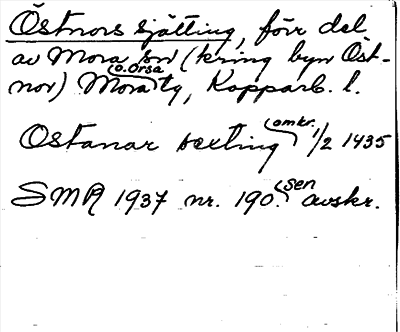 Östnors sjätting, förr del
av Mora sn (kring byn Öst-
nor) Mora o. Orsa tg, Kopparb. l.
Ostanar sexting omkr. 1/2 1435
SMR 1937 nr. 190. sen avskr.